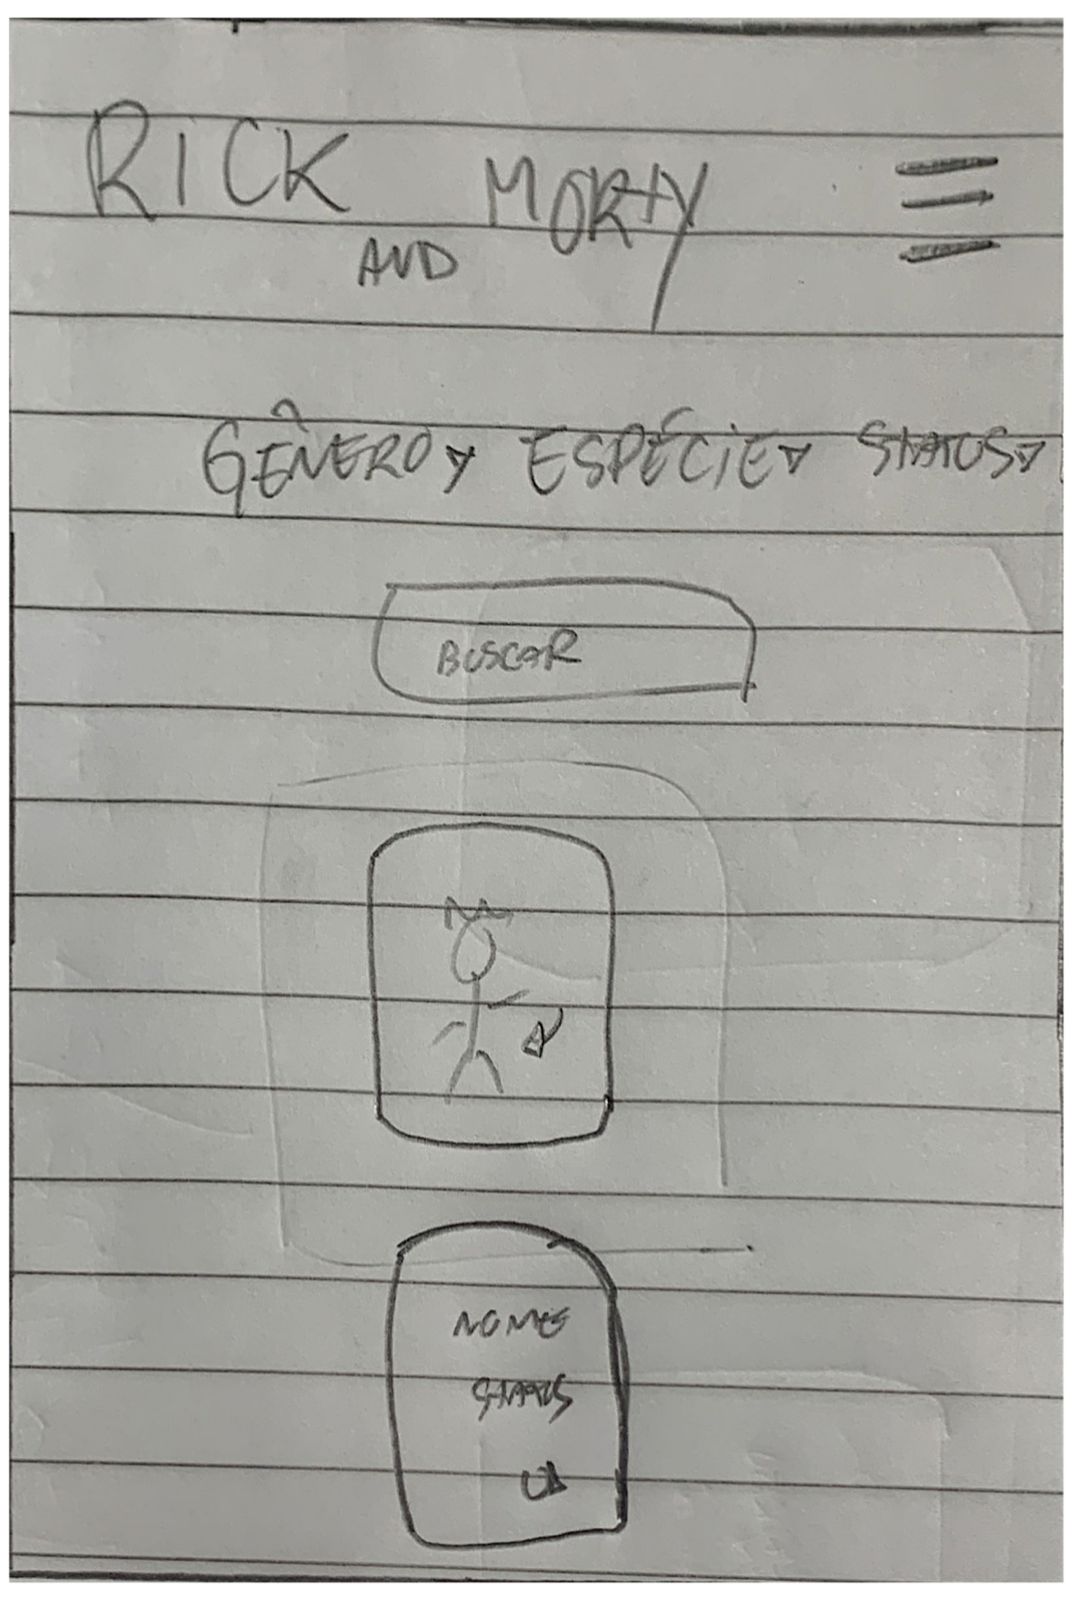 RICK AND MORTY
GÊNERO ESPÉCIE STATUS
BUSCAR
NOME
STATUS